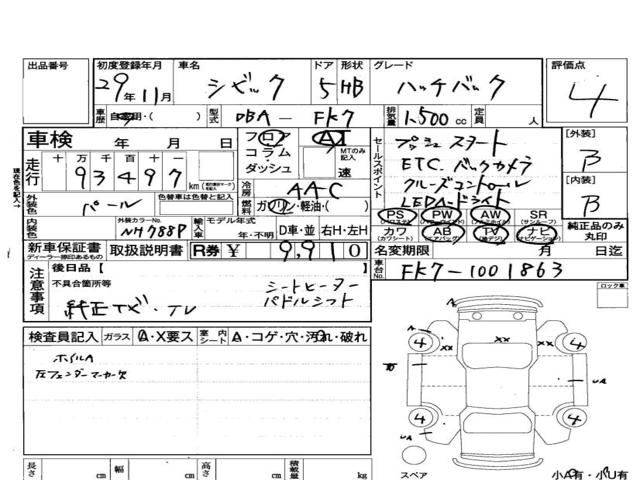 出品番号 初度登録年月 車名 ドア 形状 グレード 評価点
29年11月 シビック 5 HB ハッチバック 4
車歴 自家用・( ) 型式 DBA-FK7 排気量 1,500cc 定員 人
車検 年 月 日 フロア AT プッシュスタート [外装]
コラム MTのみ記入 セールスポイント ETC.バックカメラ B
走行 十万 万 千 百 十 一 ダッシュ 速 クルーズコントロール [内装]
93497km 冷房 AAC LEDヘッドライト B
外装色 パール 色替車は色替と記入 燃料 ガソリン・軽油・( ) PS PW AW SR
現在色を記入
内装色 外装カラーNo. NH788P 輸入車 モデル年式 年・不明 D車・並 右H・左H カワ AB TV ナビ 純正品のみ丸印
新車保証書 取扱説明書 R券 ¥ 9,910 名変期限 月 日迄
ディーラー捺印あるもの
車台No. FK7-1001863
注意事項 後日品【 】 シートヒーター
不具合箇所等 パドルシフト
純正ナビ・TV
ロック車
検査員記入 ガラス A・X要ス 室内シート A・コゲ・穴・汚れ・破れ
ホイルA
左フェンダーマーカー欠
A A
4 XX XX 4
UA
4 4
UA
スペア 小A有・小U有
長さ cm 幅 cm 高さ cm 積載量 kg